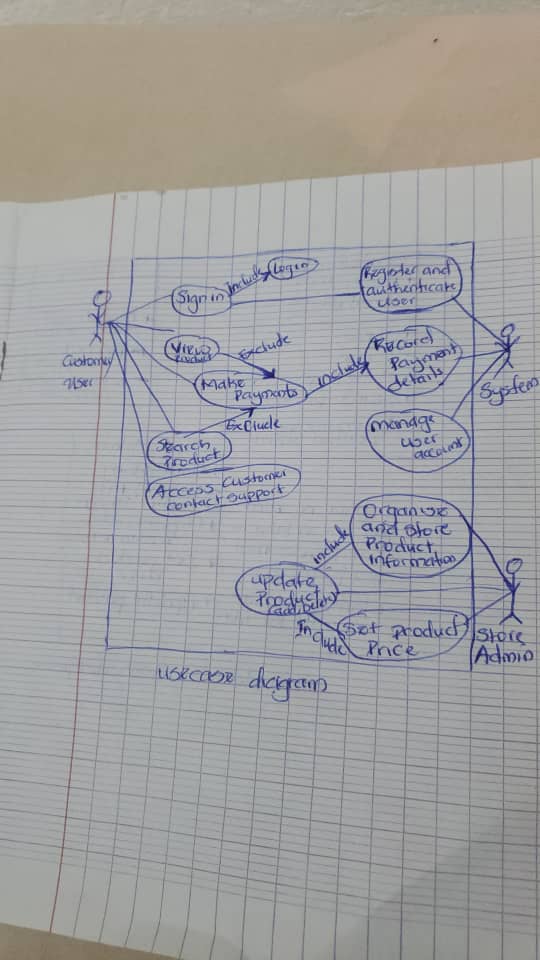 Sign in
Include
Login
Register and
authenticate
user
Customer
User
View
Product
Exclude
Make
Payments
Include
Record
Payment
details
System
Exclude
Search
Product
manage
user
account
Access customer
contact support
Organise
and store
Product
information
include
update
Product
(add, Delete)
Include
Set product
Price
Store
Admin
usecase diagram